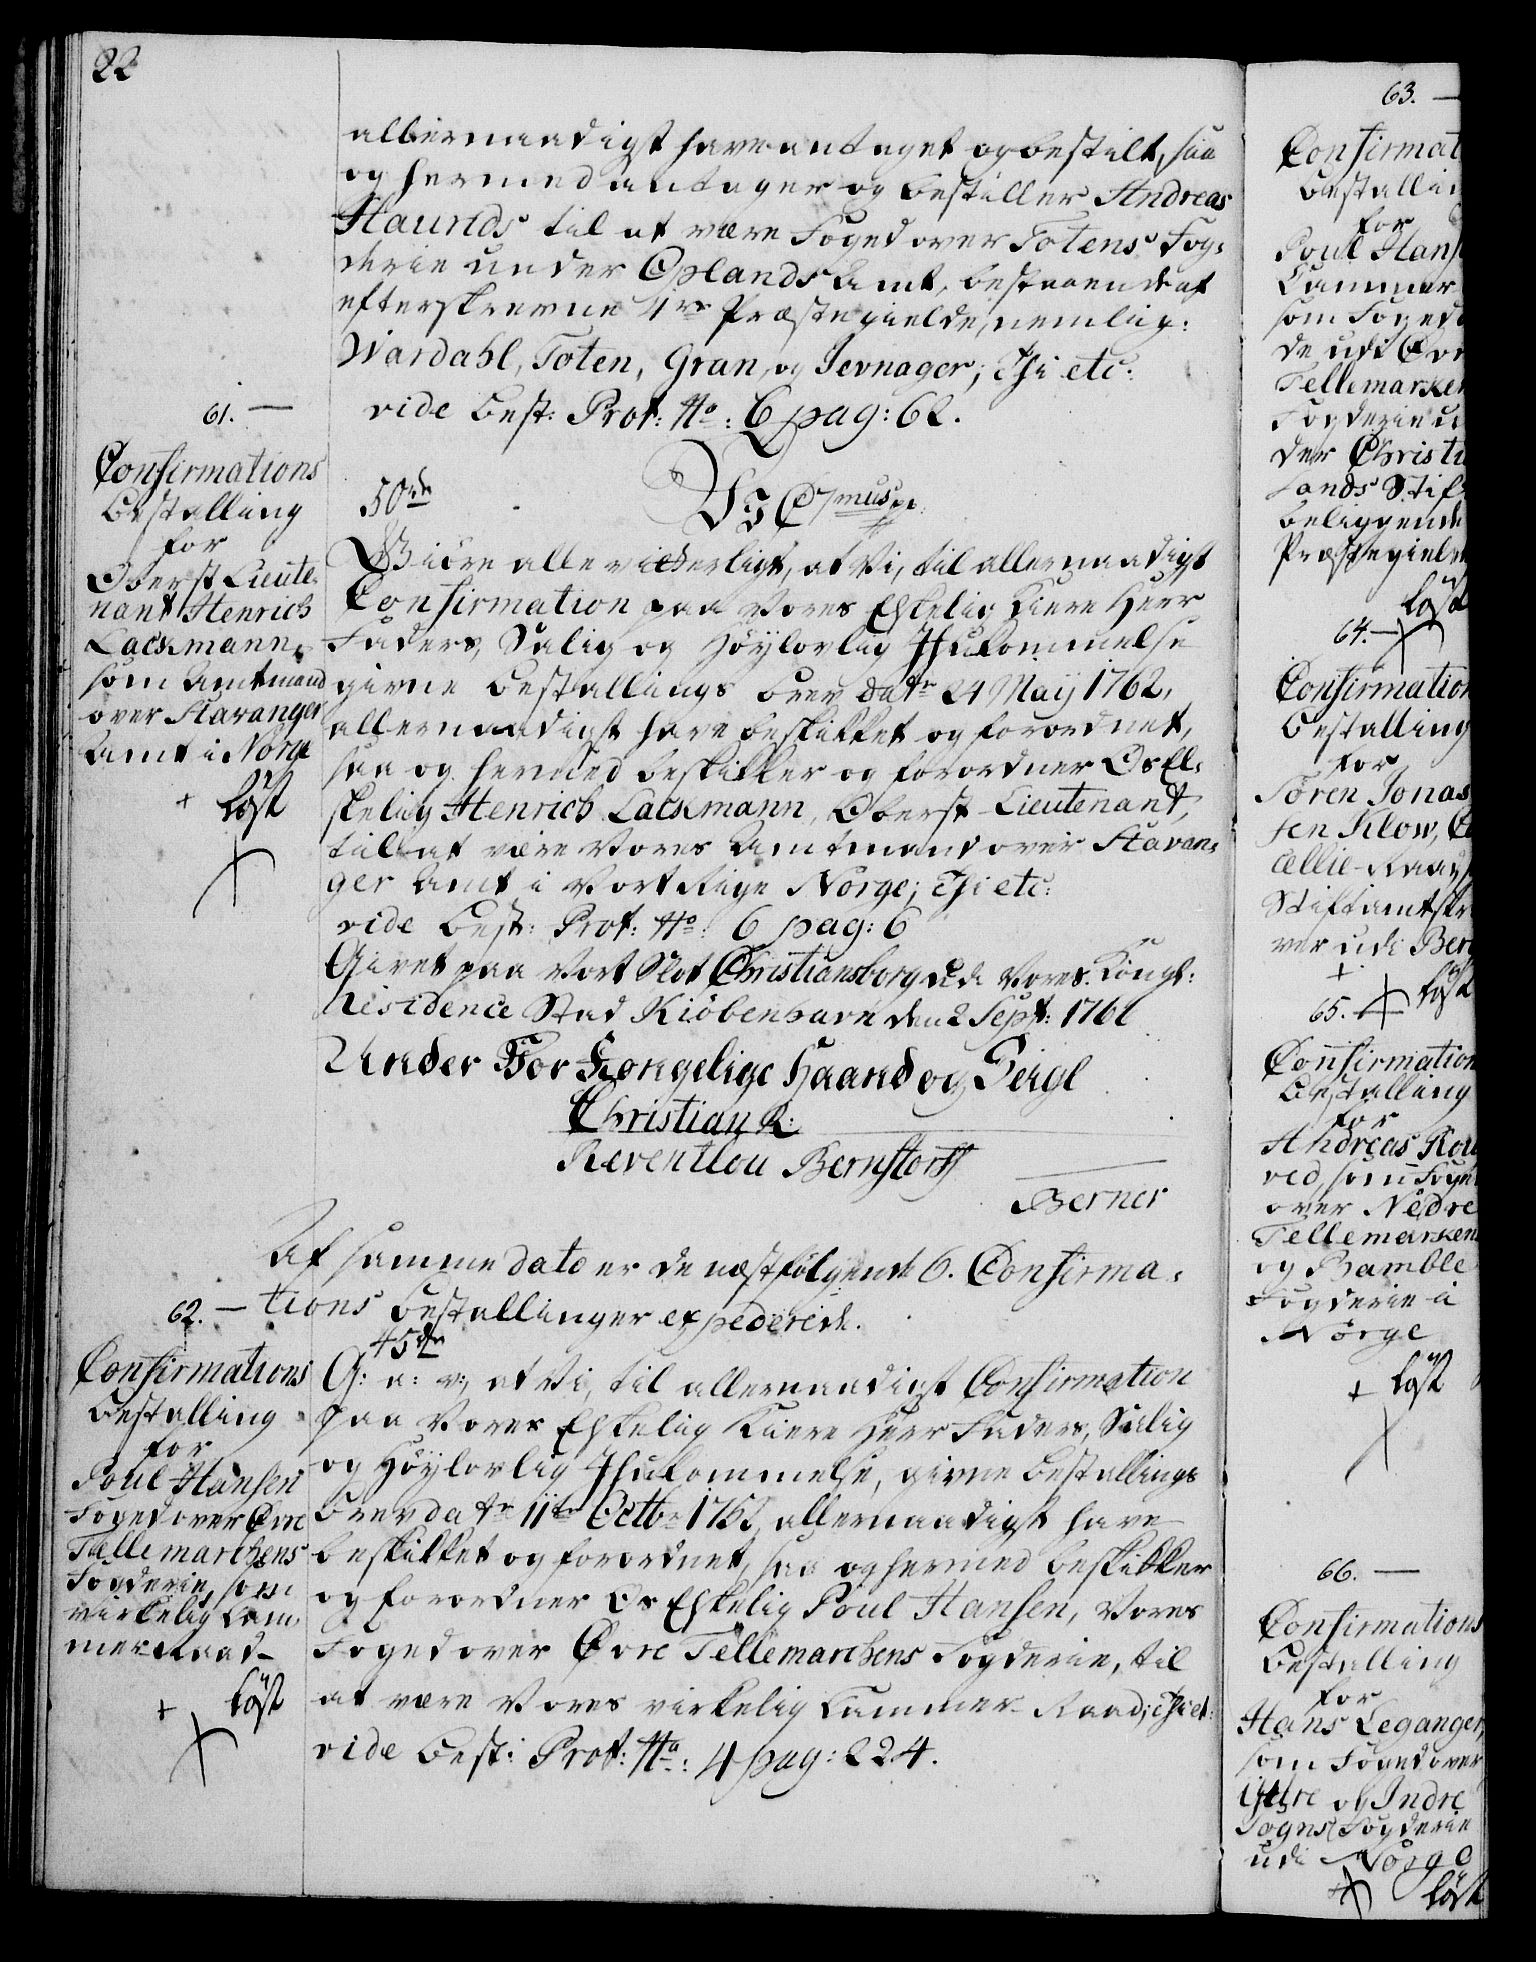 22
allernaadigst have antaget og bestilt, saa
og hermed antager og bestiller Andreas
Haurids til at være Foged over Totens Fog-
derie under Oplands Amt, bestaaende af
efterskrevne 4re Præstegielde, nemlig:
Wardahl, Toten, Gran, og Jevnager; Thi etc:
vide Best: Prot: No: 6 pag: 62.
61. —
Confirmations
Bestalling
for
Oberst Lieute-
nant Henrich
Lackmann,
som Amtmand
over Stavanger
Amt i Norge
+ löst
50rdr
VJ C 7mus pp.
Giöre alle vitterligt, at Vi, til allernaadigst
Confirmation paa Vores Elskelig Kiere Herr
Faders, Salig og Höylovlig Ihukommelse
givne Bestallings Brev datr 24 Maij 1762,
allernaadigst have beskikket og forordnet,
saa og hermed beskikker og forordner Os El-
skelig Henrich Lackmann, Oberst-Lieutenant,
til at være Vores Amtmand over Stavan-
ger Amt i Vort Rige Norge; Thi etc:
vide Best: Prot: No: 6 pag: 6
Givet paa Vort Slot Christiansborg udi Vores Kongl:
Residence Stad Kiöbenhavn den 2 Sept: 1766
Under Vor Kongelige Haand og Seigl
Christian R:
Reventlou Bernstorff
Berner
Af samme dato er de næstfölgende 6. Confirma-
tions Bestallinger expederede.
62. —
Confirmations
Bestalling
for
Poul Hansen
Foged over Övre
Tellemarchens
Fogderie, som
virkelig Cam-
mer-Raad
+ löst
45dr
G: a: v:, at Vi, til allernaadigst Confirmation
paa Vores Elskelig Kiere Herr Faders, Salig
og Höylovlig Ihukommelse, givne Bestallings
Brev datr 11te Octbr 1763, allernaadigst have
beskikket og forordnet, saa og hermed beskikker
og forordner Os Elskelig Poul Hansen, Vores
Foged over Övre Tellemarchens Fogderie, til
at være Vores virkelig Cammer-Raad; Thi et:
vide Best: Prot: No: 4 pag: 224.
63. —
Confirmat
Bestallin
for
Poul Hans
Cammer
som Foged
de udi
Tellemarken
Fogderie u
der Christi
sands Stif
beliggende
Præstegield
löst
64. —
Confirmation
Bestalling
for
Sören Jonas
sen Klow,
cellie-Raad
Stiftamtskr
ver udi Berg
+ löst
65. —
Confirmation
Bestalling
for
Andreas
ved, som Foge
over Nedre
Tellemarken
og Bamble
Fogderie i
Norge
+ löst
66. —
Confirmations
Bestalling
for
Hans Leganger,
som Foged over
Ittre og Indre
Sogns Fogderie
udi Norge
+ löst